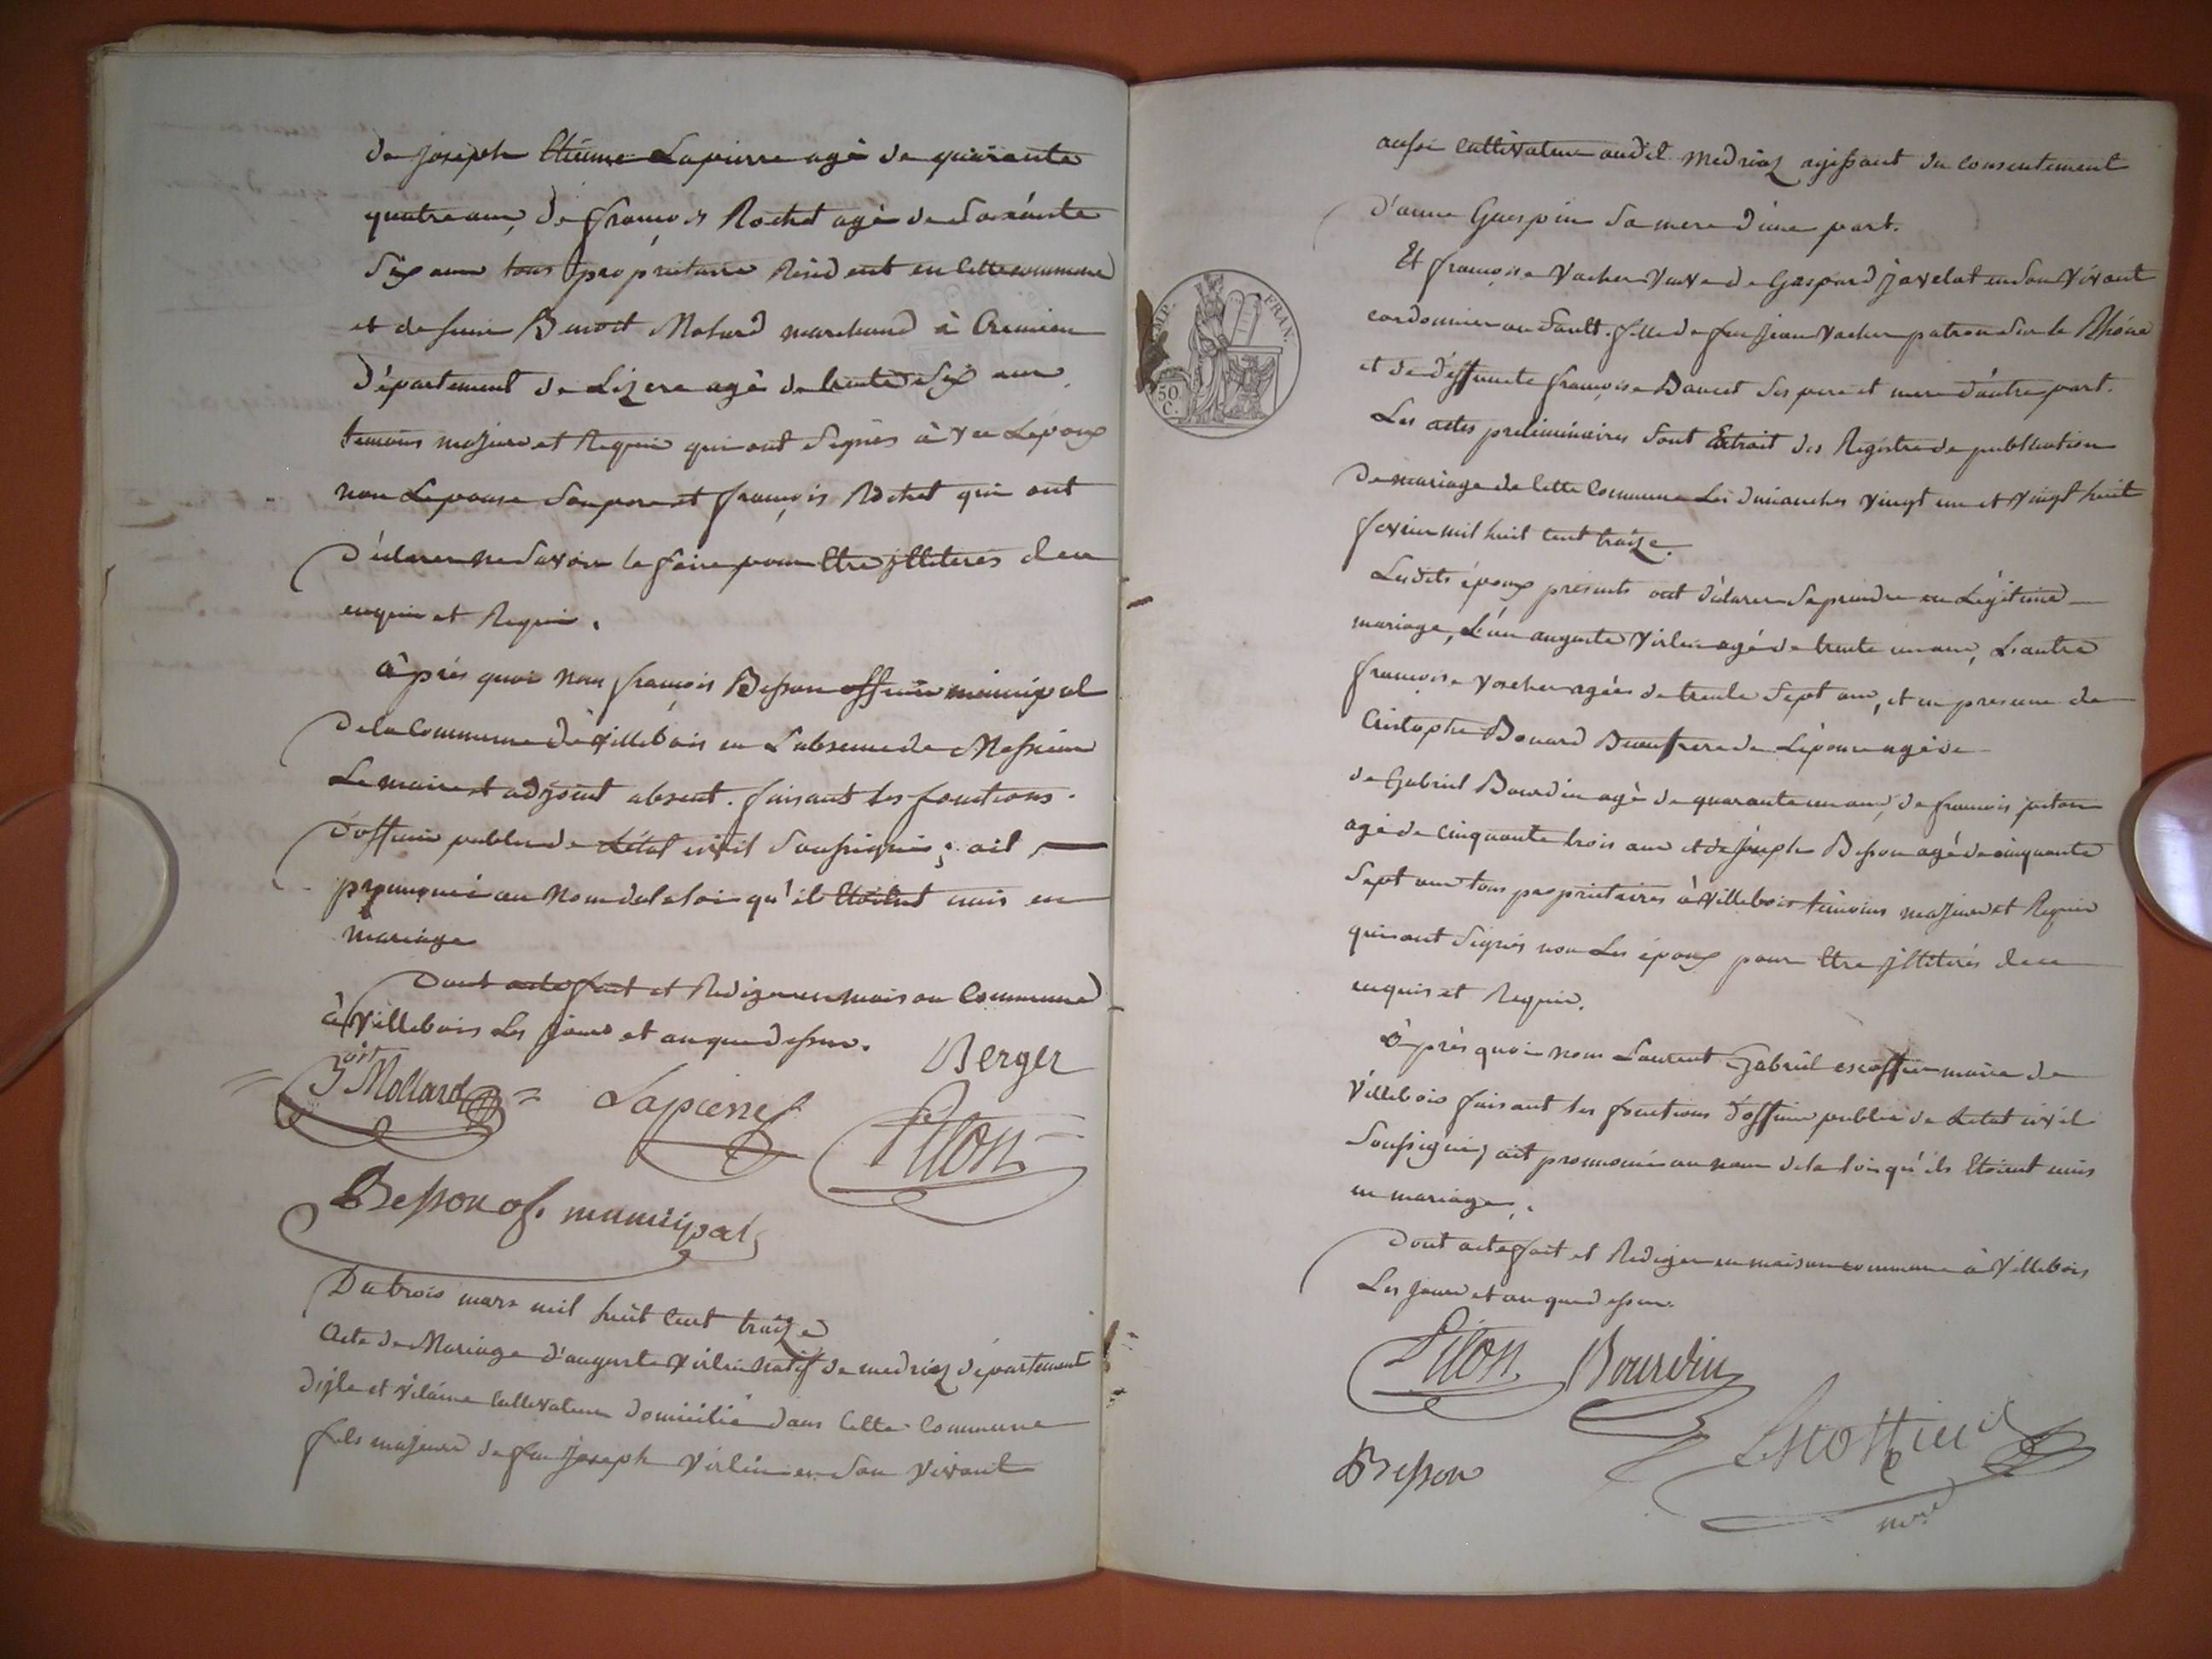 de joseph Etienne Lapierre agé de quarante
quatre ans, de françois Rochet agé de Soixante
Six ans tous propriétaire Résident en Cette commune
et de Benoit Molard marchand à Cremieu
Département de Lizere agé de trente Six ans
temoins majeurs et Requis qui ont Signés avec L'époux
non Lepouse Son pere et françois Rochet qui ont
déclarer ne Savoir le faire pour Etre jlliteres de ce
enquis et Requis.
Après quoi nous françois Besson officier municipal
de la Commune de Villebois en L'absence de Messieur
Le maire et adjoint absent. faisant les fonctions.
d'officier public de L'état civil Soussigné; ait
prononcé au Nom de la loi qu'il Etoient unis en
mariage
Dont acte fait et Rediger en maison Commune
à Villebois Les jours et an que dessus.
Berger
Mollard = Lapierre
Piton
Besson of. municipal
Du trois mars mil huit Cent traize
Acte de Mariage d'auguste Virlin Natif de medriaz département
dijle et vilaine Cultivateur domicilié dans Cette Commune
fils majeur de feu joseph Virlin en Son Vivant
aussi Cultivateur audit Medriaz agissant du Consentement
d'anne Guespin Sa mere d'une part.
Et françoise Vacher Veuve de Gaspard javelot en Son Vivant
cordonnier au Sault. fille de feu jean Vacher patron Sur le Rhône
et de deffuncte françoise Baucet Ses pere et mere d'autre part.
Les actes preliminaires Sont Extrait des Registre de publication
de mariage de Cette Commune Les dimanches vingt un et vingt huit
fevrier mil huit Cent traize.
Lesdits époux présents ont déclarer Se prendre en Légitime
mariage, L'un auguste Virlin agé de trente un ans, L'autre
françoise Vacher agée de trente Sept ans, et en presence de
Cristophe Bouard Beaufrere de L'épouse agé de
de Gabriel Bourdin agé de quarante un ans, de françois piton
agé de Cinquante trois ans et de joseph Besson agé de cinquante
Sept ans tous propriétaires à Villebois témoins majeurs et Requis
qui ont Signés non Les époux pour Etre jllitérés de ce
enquis et Requis.
Après quoi nous Laurent Gabriel escoffier maire de
Villebois faisant les fonctions d'officier public de Létat civil
Soussigné, ait prononcé au nom de la loi qu'ils Etoient unis
en mariage.
Dont acte fait et Rediger en maison commune à Villebois
Les jours et an que dessus.
Piton Bourdin
Escoffier
Besson
mre
IMP. FRAN.
50 C.